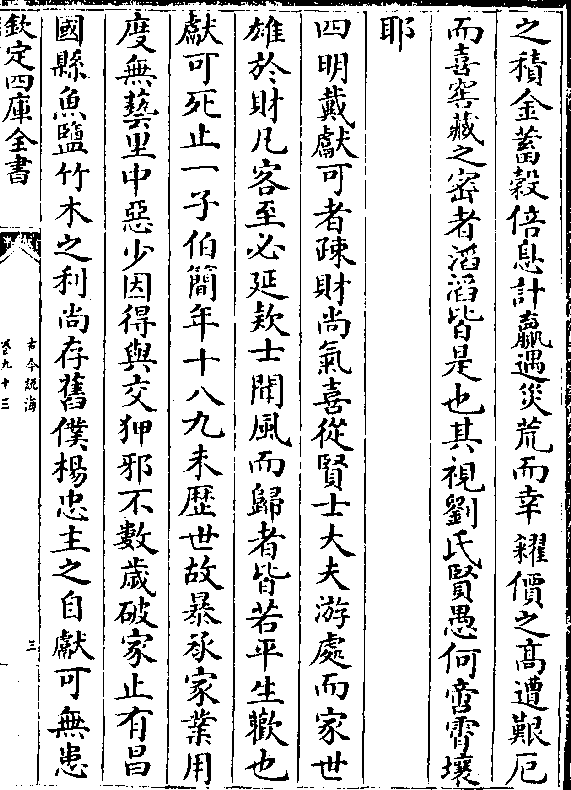 之積金蓄穀倍息計贏遇災荒而幸糴價之髙遭艱厄
而喜窖藏之密者滔滔皆是也其視劉氏賢愚何啻霄壤
耶
四明戴獻可者疎財尚氣喜從賢士大夫游處而家世
雄於財凡客至必延欵士聞風而歸者皆若平生歡也
獻可死止一子伯簡年十八九未歴世故暴承家業用
度無藝里中惡少因得與交狎邪不數歲破家止有昌
國縣魚鹽竹木之利尚存舊僕楊忠主之自獻可無恙
欽定四庫全書
古今説海
卷九十三
三